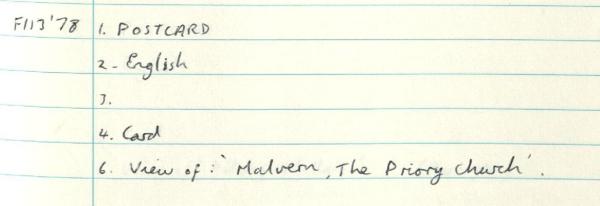 F113'78 1. POSTCARD
2. English
3.
4. Card
6. View of: 'Malvern, The Priory Church'.